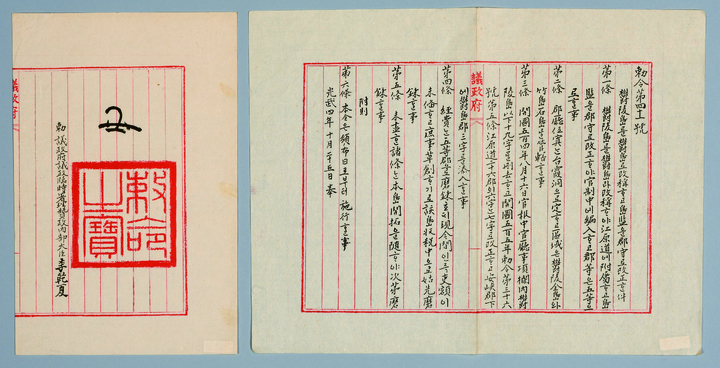 勅令第四十一號
鬱陵島를鬱島로改稱ᄒᆞ고島監을郡守로改正ᄒᆞᆫ件
第一條 鬱陵島를鬱島라改稱ᄒᆞ야江原道에附屬ᄒᆞ고島
監을郡守로改正ᄒᆞ야官制中에編入ᄒᆞ고郡等은五等으
로ᄒᆞᆯ事
第二條 郡廳位寘는台霞洞으로定ᄒᆞ고區域은鬱陵全島와
竹島石島를管轄ᄒᆞᆯ事
第三條 開國五百四年八月十六日官報中官廳事項欄內鬱
陵島以下十九字를刪去ᄒᆞ고開國五百五年勅令第三十六
號第五條江原道二十六郡의六字는七字로改正ᄒᆞ고安峽郡下
에鬱島郡三字를添入ᄒᆞᆯ事
議政府
第四條 經費는五等郡으로磨鍊호ᄃᆡ現今間인즉吏額이
未備ᄒᆞ고庶事草創ᄒᆞ기로該島收稅中으로姑先磨
鍊ᄒᆞᆯ事
第五條 未盡ᄒᆞᆫ諸條는本島開拓을隨ᄒᆞ야次第磨
鍊ᄒᆞᆯ事
附則
第六條 本令은頒布日로부터施行ᄒᆞᆯ事
光武四年十月二十五日奉
議政府
勅命之寶
勅 議政府議政臨時署理贊政內部大臣李乾夏